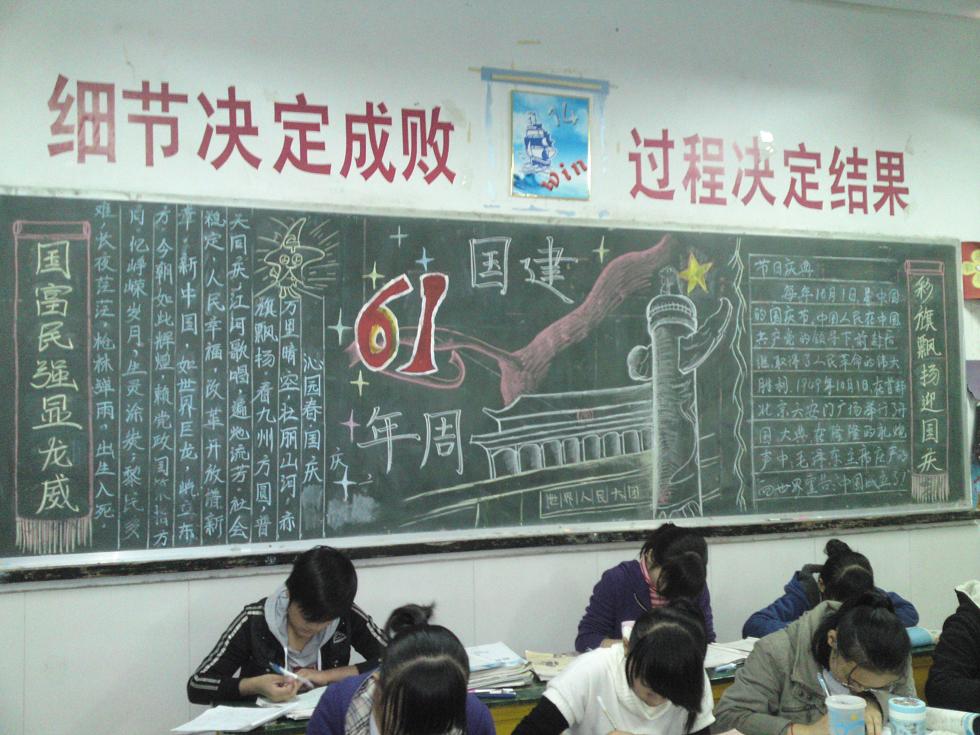 细节决定成败
14
win
过程决定结果
国富民强显龙威
沁园春·国庆
万里晴空,壮丽山河,赤
旗飘扬,看九州方圆,普
天同庆,江河歌唱,遍地流芳,社会
稳定,人民幸福,改革开放谱新
章,新中国,如世界巨龙,屹立东
方,今朝如此辉煌,赖党政国策指方
向,忆峥嵘岁月,生灵涂炭,黎民
难,长夜茫茫,枪林弹雨,出生入死,
庆
61
国建
年周
世界人民大团
节日庆典:
每年10月1日是中国
的国庆节,中国人民在中国
共产党的领导下前赴后
继,取得了人民革命的伟大
胜利.1949年10月1日,在首都
北京天安门广场举行了开
国大典,在隆隆的礼炮
声中,毛泽东主席庄严的
向世界宣告:中国成立了!
彩旗飘扬迎国庆